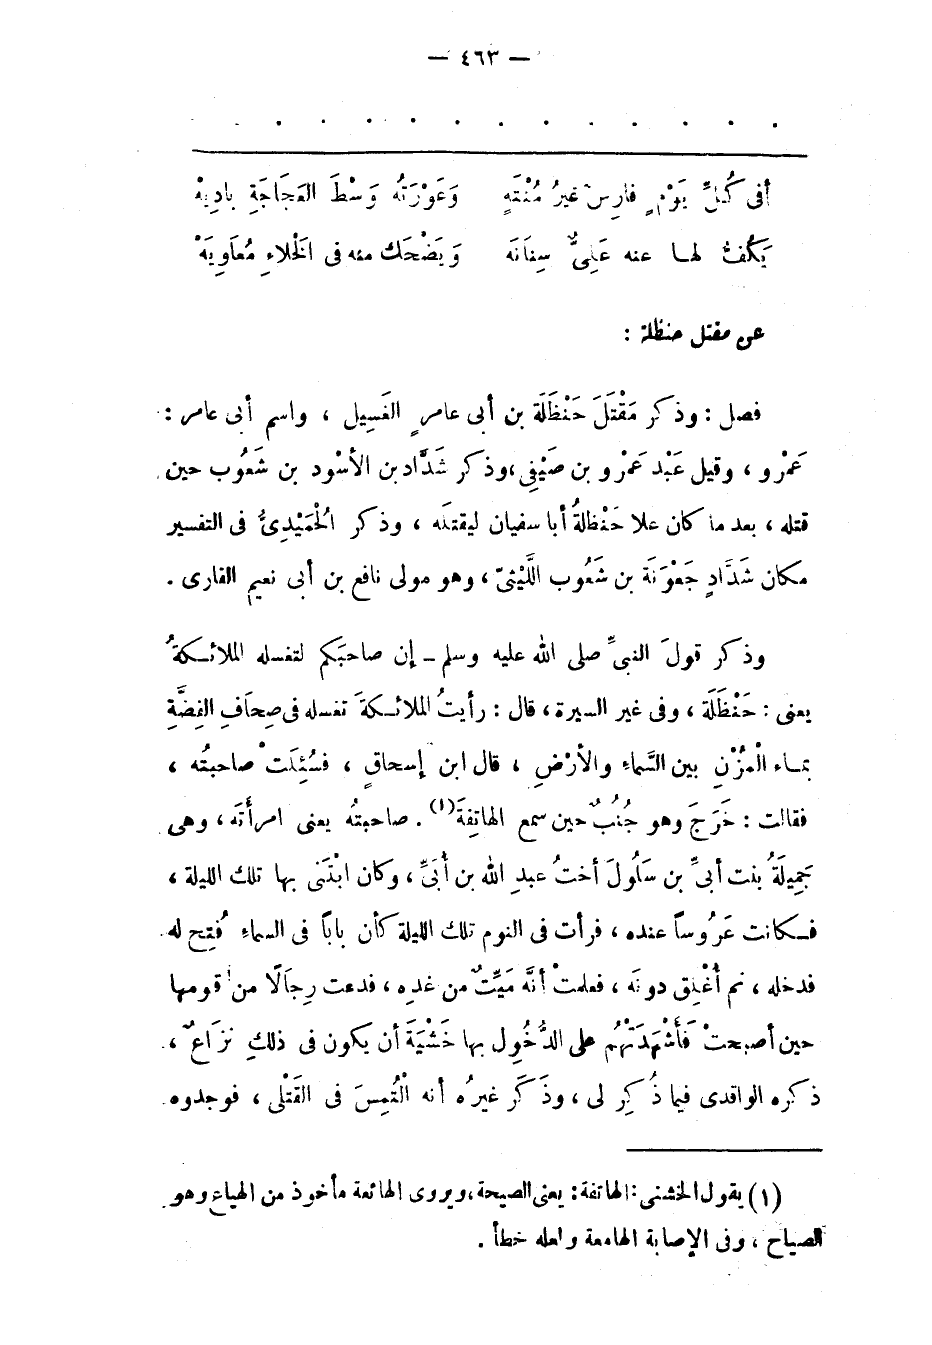 — ٤٦٣ —
أفى كُلِّ يَوْمٍ فارِسٌ غيرُ مُنْتَهٍ وَعَوْرَتُه وَسْطَ العَجَاجَةِ بادِيهْ
يَكُفُّ لهـا عنه عَلِىٌّ سِنَانَه وَيَضْحَك منه فى الخلاءِ مُعَاوِيَهْ
عن مقتل حنظلة :
فصل : وذكر مَقْتَلَ حَنْظَلَة بن أبى عامرٍ الغَسِيل ، واسم أبى عامر :
عَمْرو ، وقيل عَبْد عَمْرو بن صَيْفِى ،وذكر شَدَّادبن الأسْود بن شَعُوب حين
قتله ، بعد ما كان علا حَنْظلةُ أبا سفيان ليقتلَه ، وذكر الْحَمَيْدِىُّ فى التفسير
مكان شَدَّادٍ جَعْوَنَة بن شَعُوب اللَّيْثىّ ، وهو مولى نافع بن أبى نعيم القارى .
وذكر قولَ النبىِّ صلى الله عليه وسلم ـ إن صاحبَكم لتغسله الملائـكةُ
يعنى : حَنْظَلَة ، وفى غير السيرة ، قال : رأيتُ الملائـكةَ تغسله فى صِحَافِ الفِضَّةِ
بمـاء الْمُزْنِ بين السَّماءِ والأرْضِ ، قال ابن إسحاقٍ ، فسُئِلَتْ صاحبتُه ،
فقالت : خَرَجَ وهو جُنُبٌ حين سمع الهاتِفَةَ(١) . صاحبتُه يعنى امرأتَه ، وهى
جَمِيلَةُ بنت أبىِّ بن سَلُولَ أختُ عبدِ الله بن أُبَىِّ ، وكان ابْتَنى بها تلك الليلة ،
فـكانت عَرُوساً عنده ، فرأت فى النوم تلك الليلة كأن باباً فى السماءِ فُتِح له
فدخله ، ثم أُغْلِق دونَه ، فعلمتْ أنَّه مَيِّتٌ من غدِه ، فدعت رِجالًا من قومها
حين أصبحتْ فَأَشْهَدَتْهُم على الدُّخُول بها خَشْيَةَ أن يكون فى ذلكِ نزَاعٌ ،
ذكره الواقدى فيما ذُكِر لى ، وذَكَر غيرُه أنه الْتُمِسَ فى القَتْلى ، فوجدوه
(١) يقول الخشنى : الهاتفة : يعنى الصيحة ، ويروى الهائعة مأخوذ من الهياع وهو
الصياح ، وفى الإصابة الهامعة ولعله خطأ .